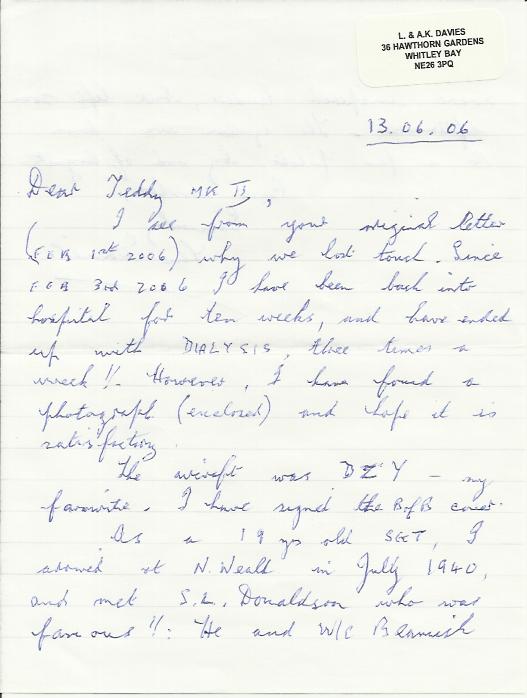 L. & A.K. DAVIES
36 HAWTHORN GARDENS
WHITLEY BAY
NE26 3PQ
13.06.06
Dear Teddy MK II,
I see from your original letter
(FEB 1st 2006) why we lost touch. Since
FEB 3rd 2006 I have been back into
hospital for ten weeks, and have ended
up with DIALYSIS, three times a
week!! However, I have found a
photograph (enclosed) and hope it is
satisfactory.
The aircraft was DZY – my
favourite. I have signed the BofB cover.
As a 19 yrs old SGT, I
arrived at N. Weald in July 1940,
and met S.L. Donaldson who was
famous!!: He and W/C Beamish